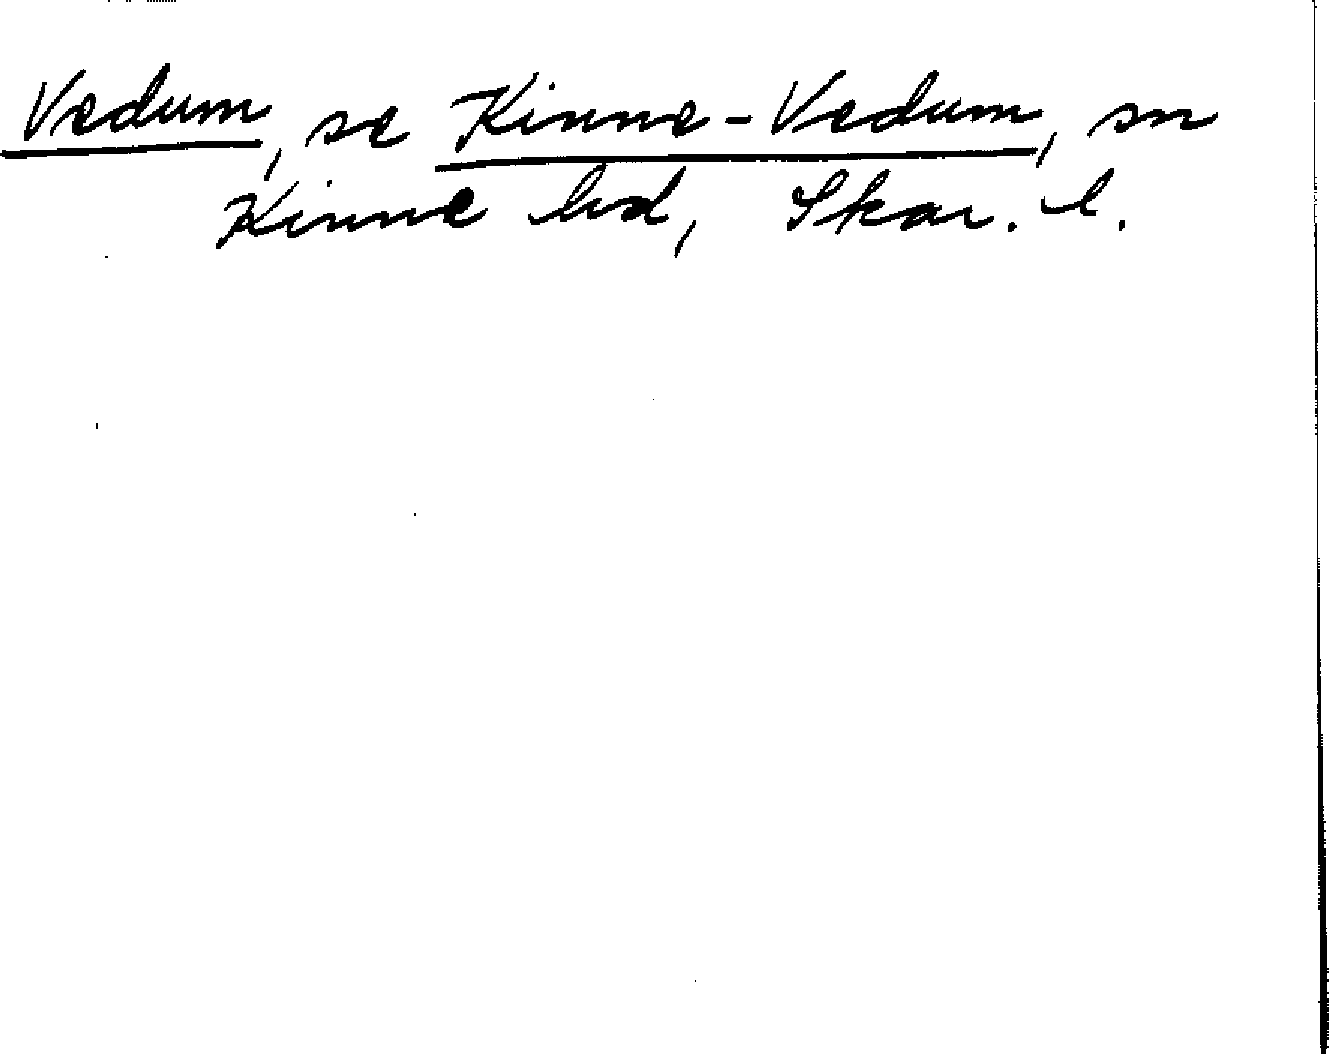 Vedum, se Kinne-Vedum, sn
Kinne hd, Skar. l.